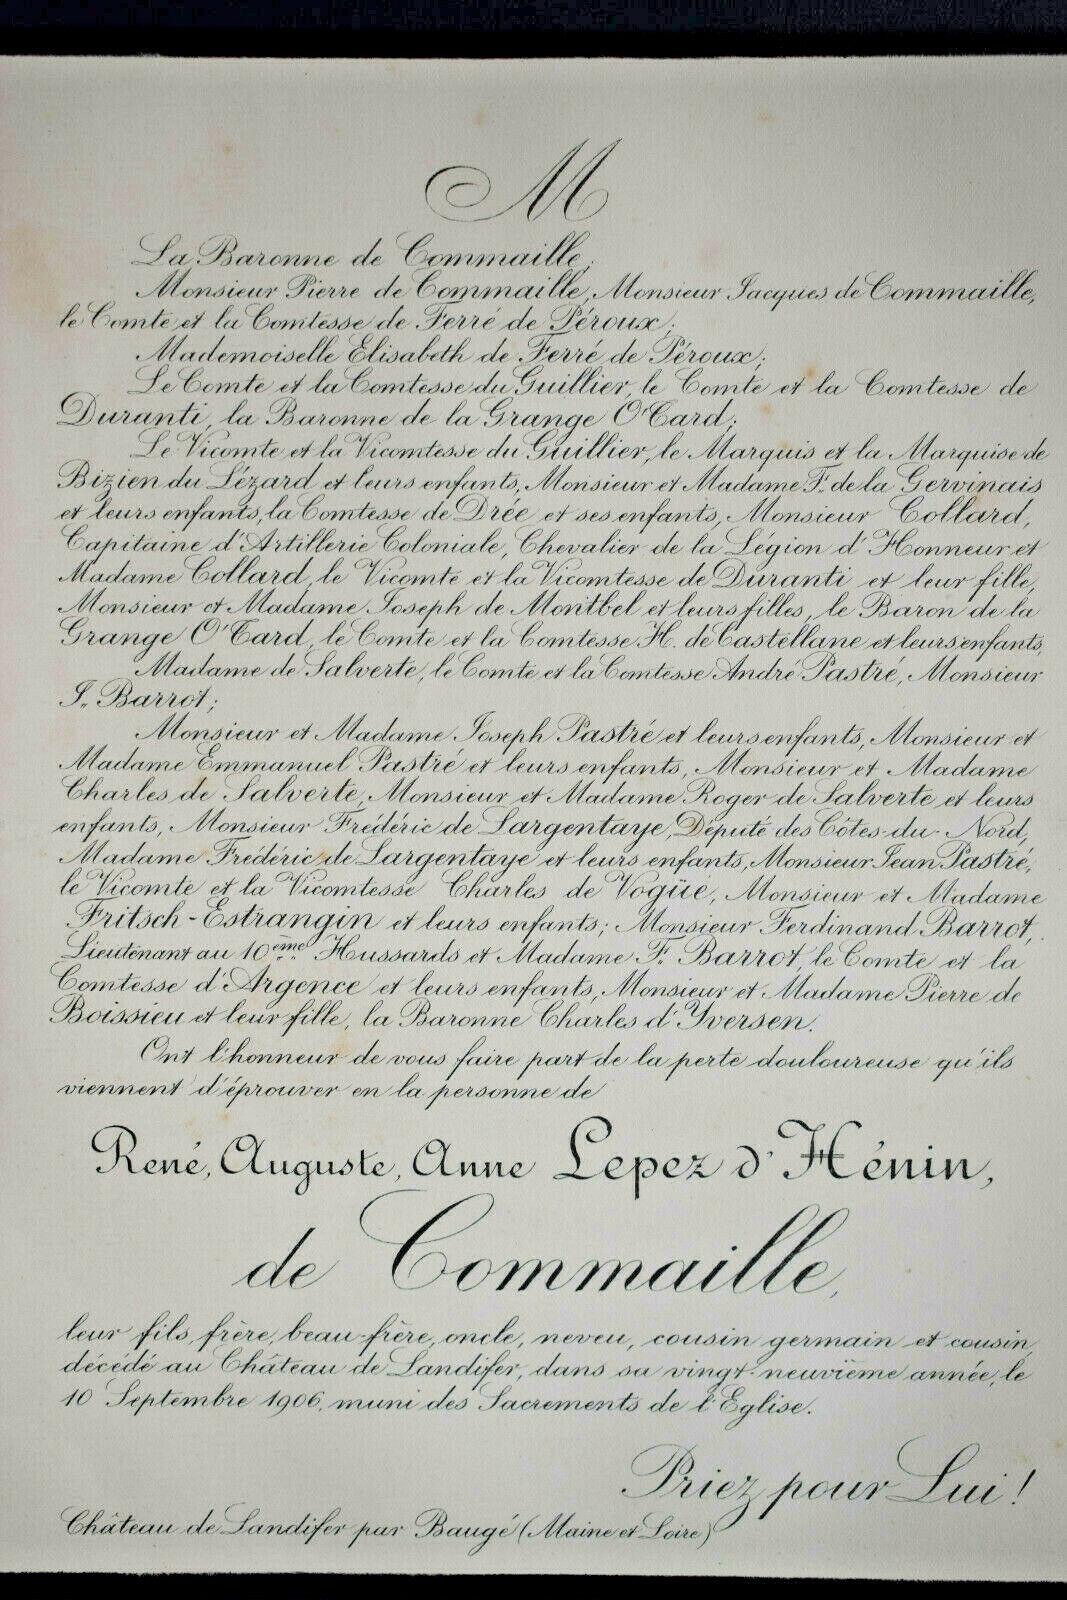 M
La Baronne de Commaille;
Monsieur Pierre de Commaille, Monsieur Jacques de Commaille,
le Comte et la Comtesse de Ferré de Péroux;
Mademoiselle Elisabeth de Ferré de Péroux;
Le Comte et la Comtesse du Guillier, le Comte et la Comtesse de
Duranti, la Baronne de la Grange O'Tard;
Le Vicomte et la Vicomtesse du Guillier, le Marquis et la Marquise de
Bizien du Lézard et leurs enfants, Monsieur et Madame F. de la Gervinais
et leurs enfants, la Comtesse de Drée et ses enfants, Monsieur Collard,
Capitaine d'Artillerie Coloniale, Chevalier de la Légion d'Honneur et
Madame Collard, le Vicomte et la Vicomtesse de Duranti et leur fille,
Monsieur et Madame Joseph de Montbel et leurs filles, le Baron de la
Grange O'Tard, le Comte et la Comtesse H. de Castellane et leurs enfants,
Madame de Salverte, le Comte et la Comtesse André Pastré, Monsieur
J. Barrot;
Monsieur et Madame Joseph Pastré et leurs enfants, Monsieur et
Madame Emmanuel Pastré et leurs enfants, Monsieur et Madame
Charles de Salverte, Monsieur et Madame Roger de Salverte et leurs
enfants, Monsieur Frédéric de Largentaye, Député des Côtes-du-Nord,
Madame Frédéric de Largentaye et leurs enfants, Monsieur Jean Pastré,
le Vicomte et la Vicomtesse Charles de Vogüé, Monsieur et Madame
Fritsch-Estrangin et leurs enfants; Monsieur Ferdinand Barrot,
Lieutenant au 10ème Hussards et Madame F. Barrot, le Comte et la
Comtesse d'Argence et leurs enfants, Monsieur et Madame Pierre de
Boissieu et leur fille, la Baronne Charles d'Yversen.
Ont l'honneur de vous faire part de la perte douloureuse qu'ils
viennent d'éprouver en la personne de
René, Auguste, Anne Lepez d'Hénin,
de Commaille,
leur fils, frère, beau-frère, oncle, neveu, cousin germain et cousin,
décédé au Château de Landifer, dans sa vingt-neuvième année, le
10 Septembre 1906, muni des Sacrements de l'Eglise.
Priez pour Lui!
Château de Landifer par Baugé (Maine et Loire)